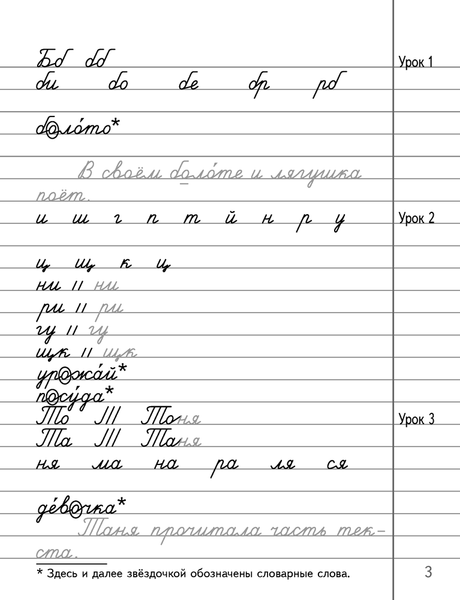 Бб бб Урок 1
би бо бе бр рб
боло́то*
В своём болоте и лягушка
поёт.
и ш г п т й н р у Урок 2
ц щ к ц
ни // ни
ри // ри
гу // гу
щк // щк
урожа́й*
посу́да*
То /// Тоня Урок 3
Та /// Таня
ня ма на ра ля ся
де́вочка*
Таня прочитала часть тек-
ста.
* Здесь и далее звёздочкой обозначены словарные слова.
3